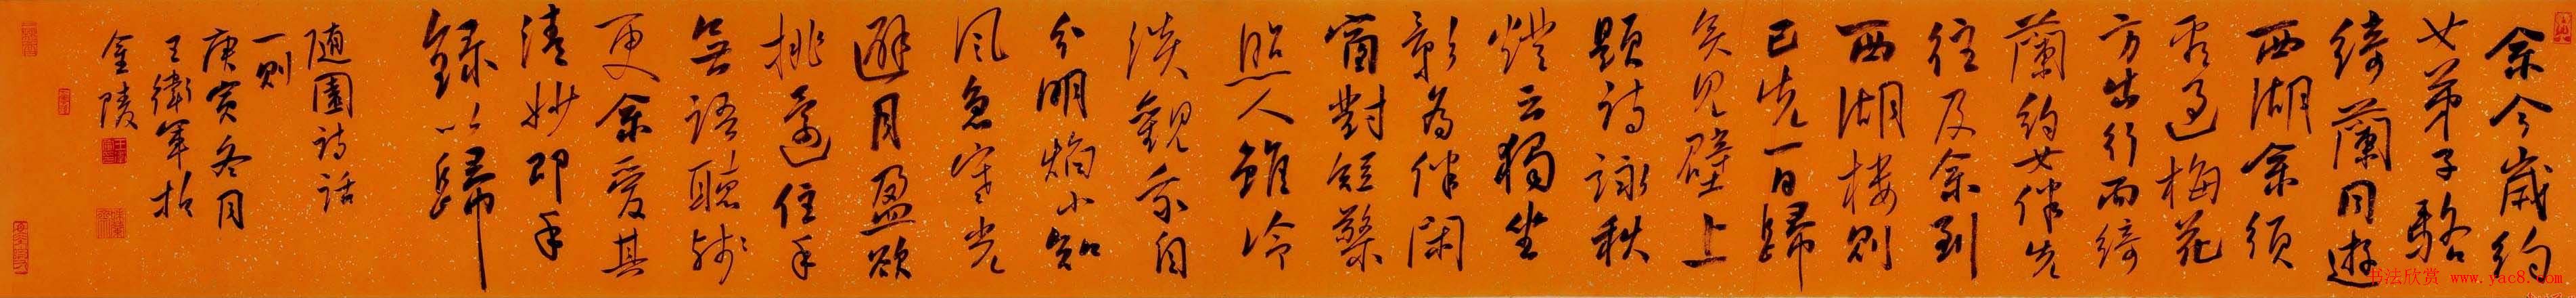 余今歲約
女弟子駱
綺蘭同遊
西湖余須
看過梅花
方出行而綺
蘭約女伴先
往及余到
西湖樓則
已先一日歸
矣見壁上
題詩詠秋
燈云獨坐
影為伴閑
窗對短檠
照人雖冷
淡觀我自
分明焰小知
風急寒光
避月盈欲
挑還住手
無語聽殘
更余愛其
清妙即手
錄以歸
隨園詩話
一則
庚寅冬月
王衛軍於
金陵
书法欣赏 www.yac8.com